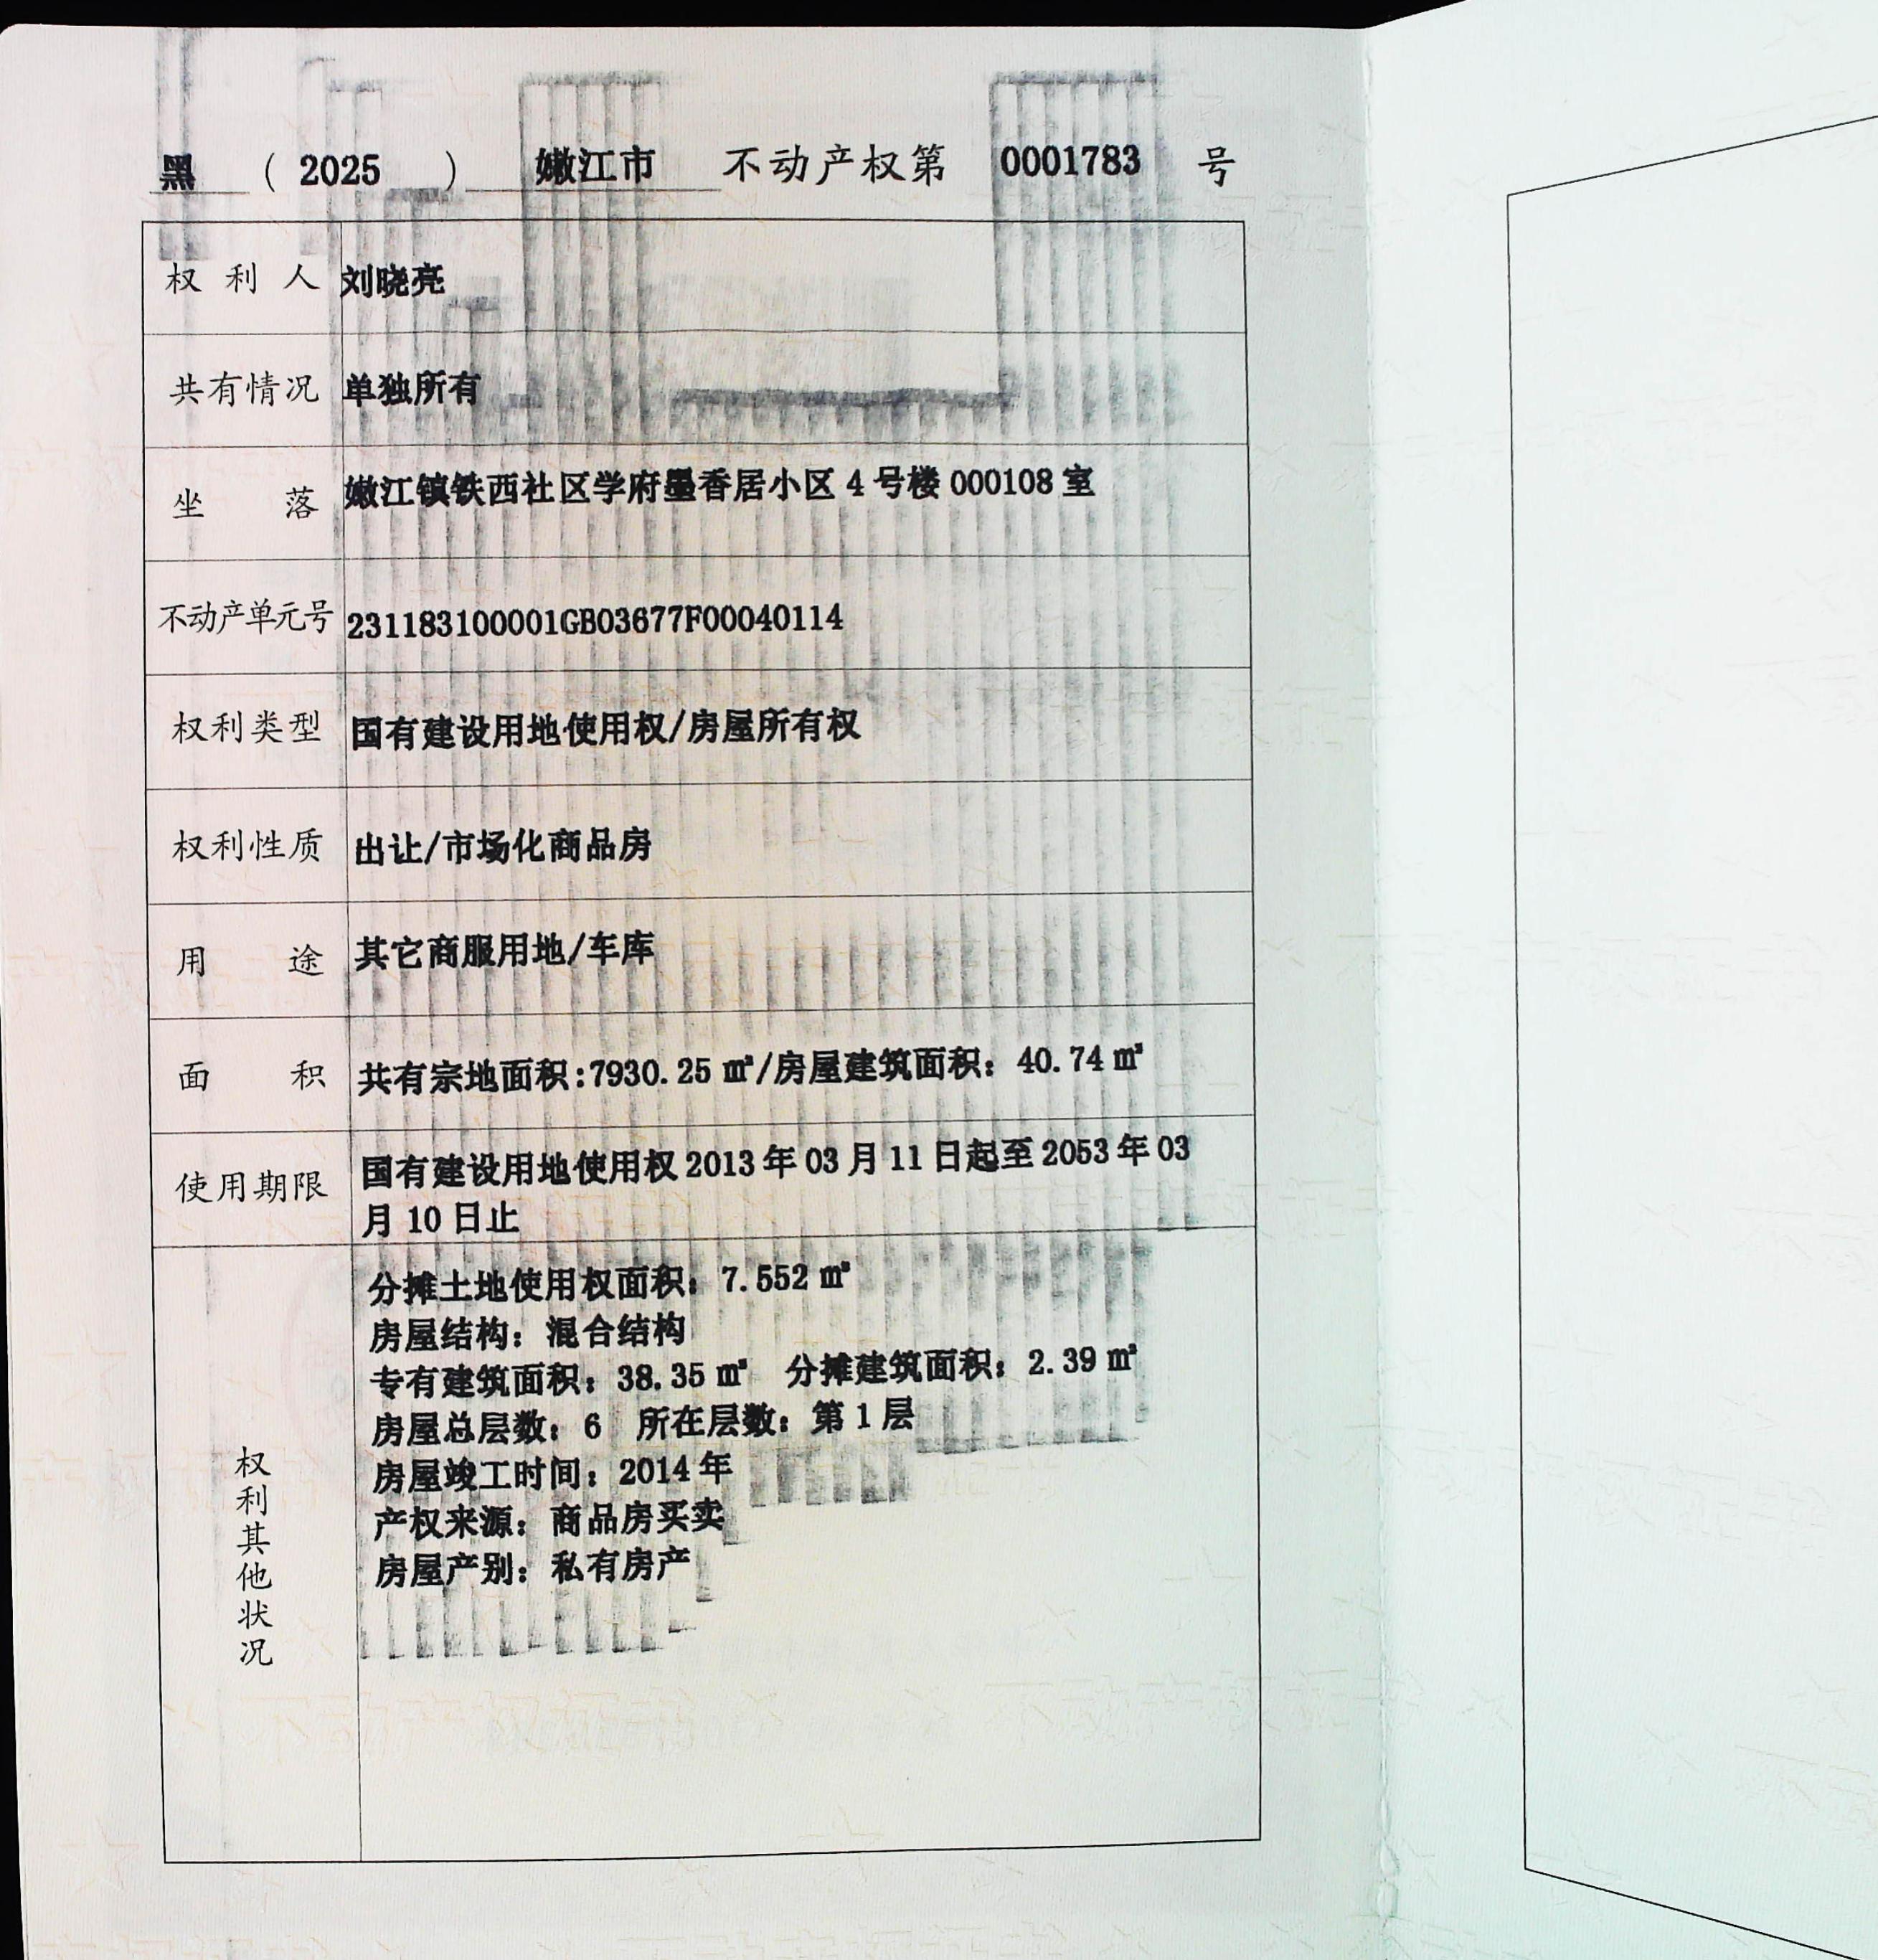 黑 （ 2025 ） 嫩江市 不动产权第 0001783 号
权利人 刘晓亮
共有情况 单独所有
坐落 嫩江镇铁西社区学府墨香居小区 4 号楼 000108 室
不动产单元号 231183100001GB03677F00040114
权利类型 国有建设用地使用权/房屋所有权
权利性质 出让/市场化商品房
用途 其它商服用地/车库
面积 共有宗地面积:7930.25 ㎡/房屋建筑面积：40.74 ㎡
使用期限 国有建设用地使用权 2013 年 03 月 11 日起至 2053 年 03
月 10 日止
权利其他状况
分摊土地使用权面积：7.552 ㎡
房屋结构：混合结构
专有建筑面积：38.35 ㎡ 分摊建筑面积：2.39 ㎡
房屋总层数：6 所在层数：第 1 层
房屋竣工时间：2014 年
产权来源：商品房买卖
房屋产别：私有房产